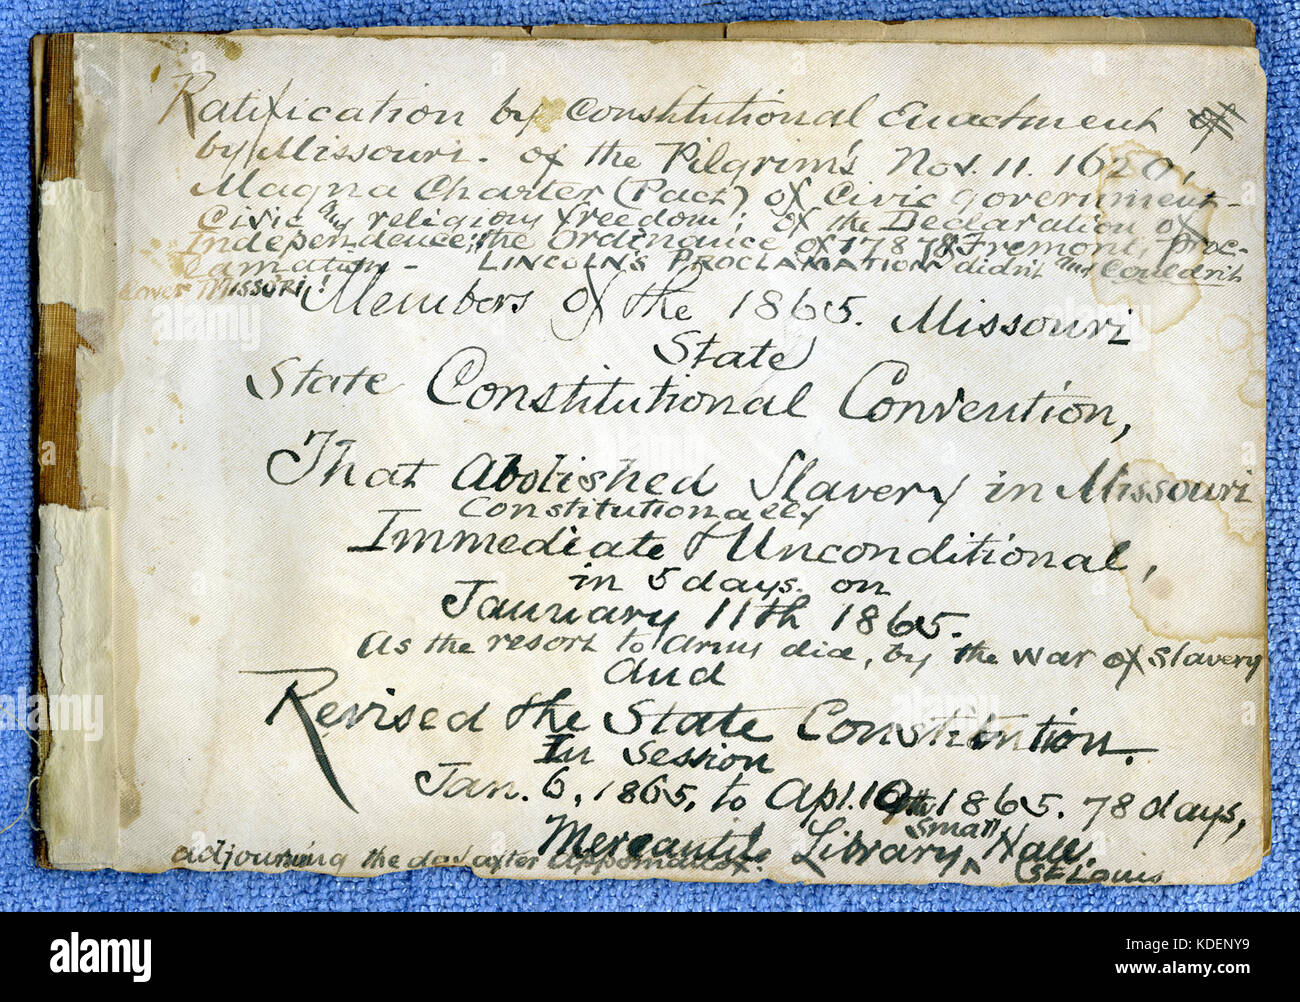 Ratification by Constitutional Enactment of
by Missouri. of the Pilgrim's Nov. 11. 1620,
Magna Charter (Pact) of Civic government-
Civic any religious freedom; of the Declaration of
Independence; the Ordinance of 1787 & Fremont, Proc-
lamation - LINCOLN'S PROCLAMATION didn't and Couldn't
Cover MISSOURI!
Members of the 1865. Missouri
State
State Constitutional Convention,
That Abolished Slavery in Missouri
Constitutionally
Immediate & Unconditional,
in 5 days. on
January 11th 1865.
As the resort to Arms did, by the war of Slavery
And
Revised the State Constitution.
In Session
Jan. 6, 1865, to Apl. 10th 1865. 78 days,
small
Mercantile Library ^ Hall.
adjourning the day after Appomattox.
St Louis
alamy
alamy
Image ID: KDENY9
www.alamy.com